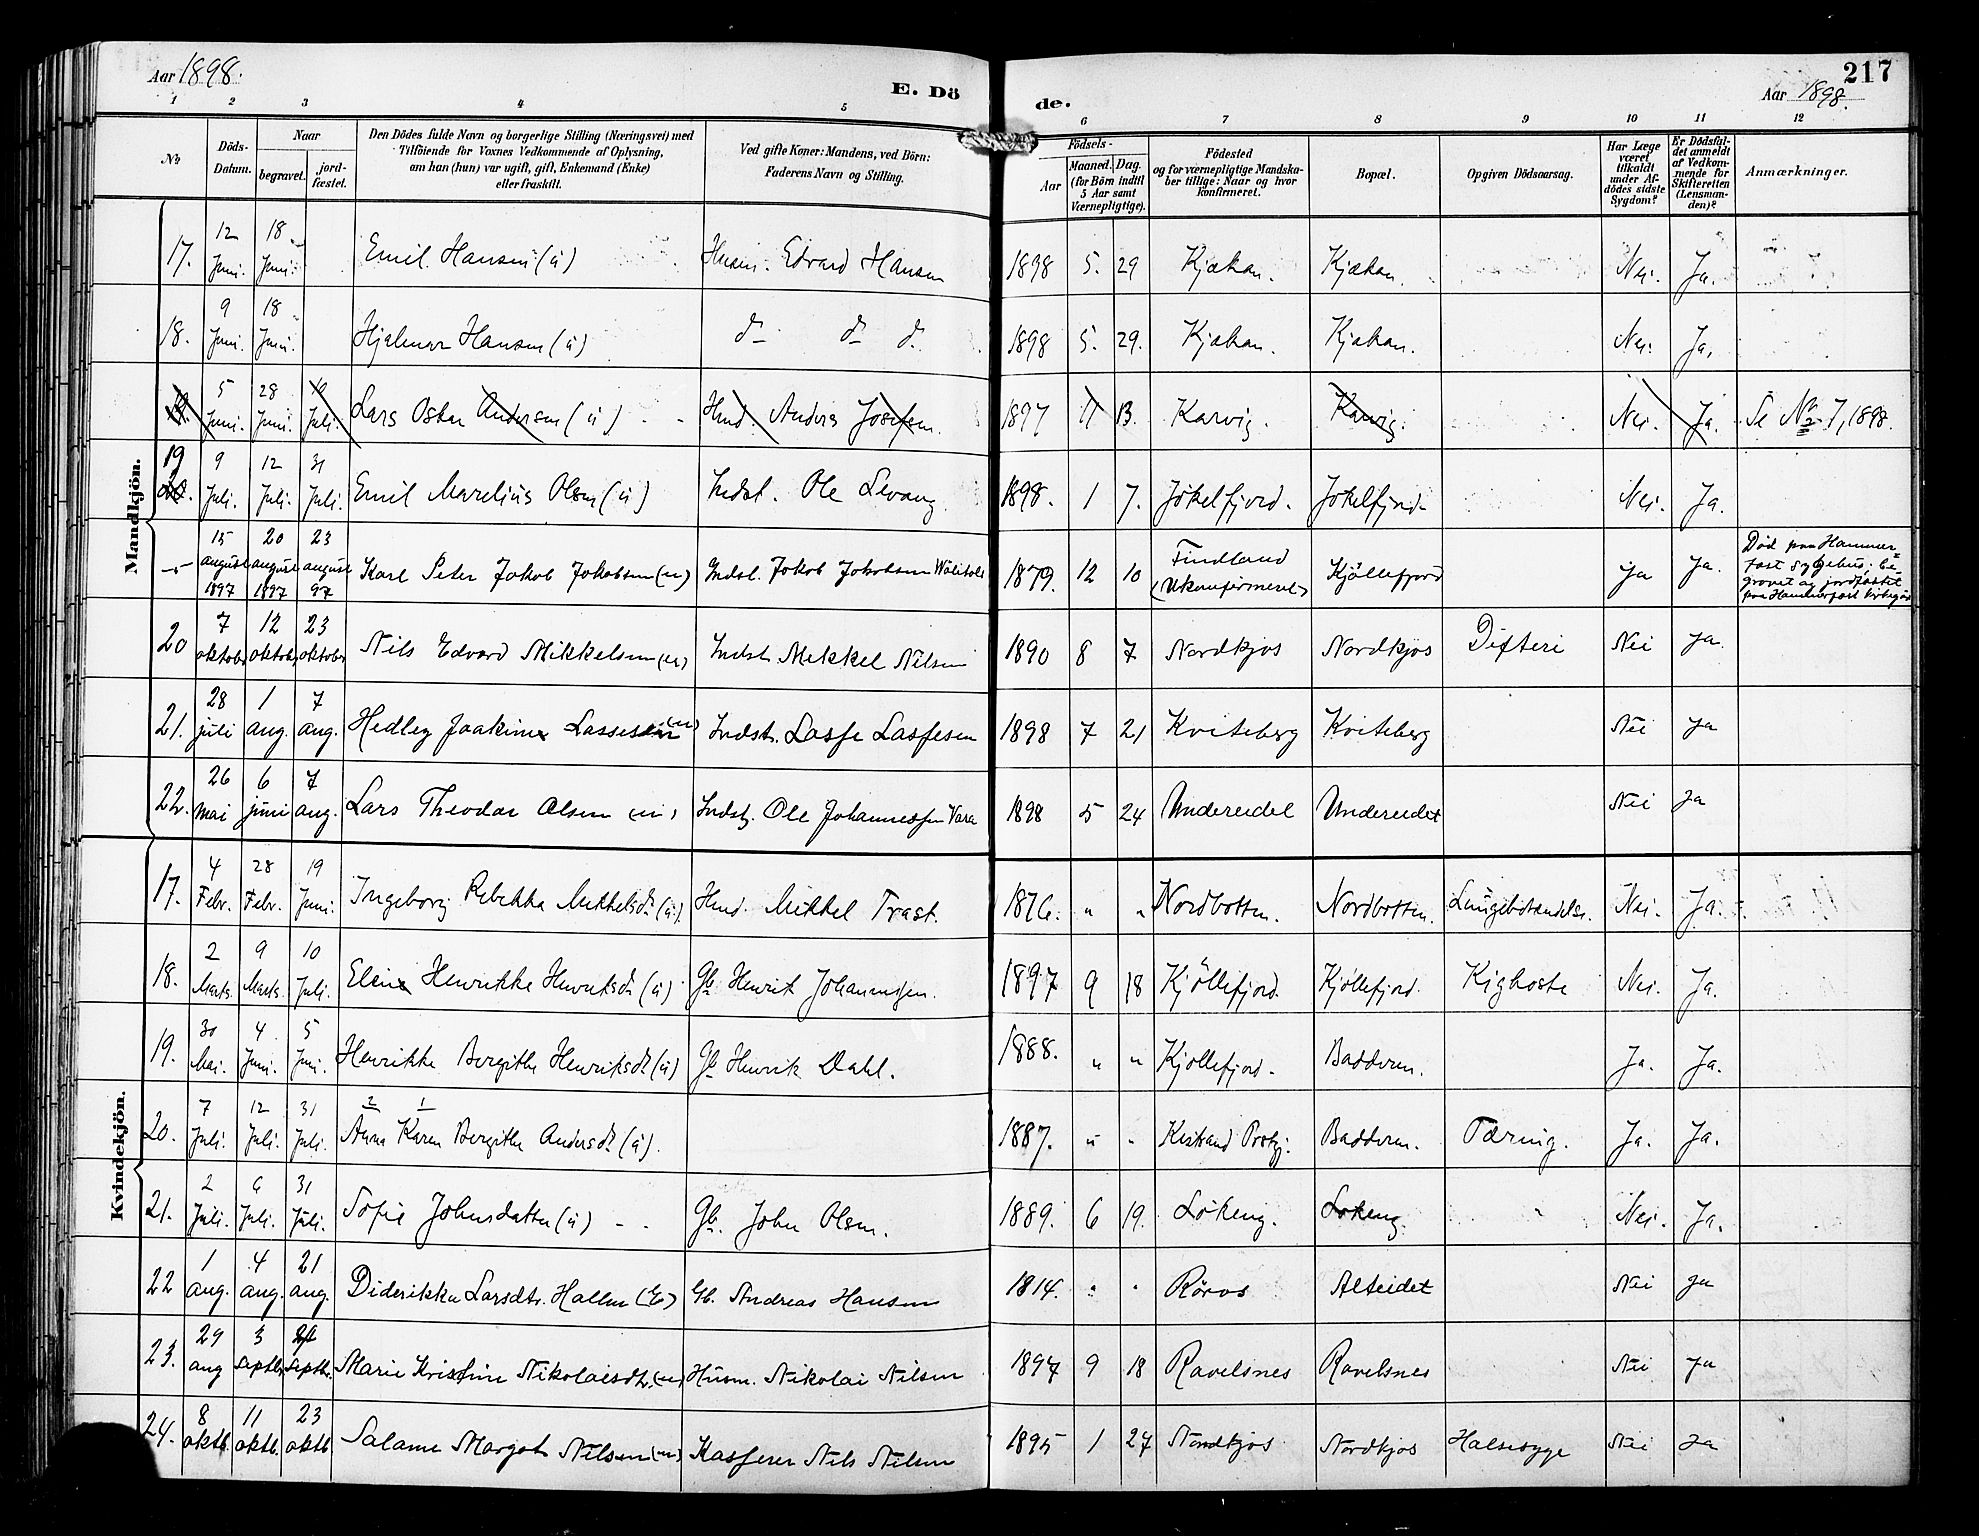 Aar 1898.
E. Dö
de.
217
Aar 1898.
1 2 3 4 5 6 7 8 9 10 11 12
No
Döds-
Datum.
Naar
begravet.
jord-
fæstet.
Den Dödes fulde Navn og borgerlige Stilling (Næringsvei) med
Tilföiende for Voxnes Vedkommende af Oplysning,
om han (hun) var ugift, gift, Enkemand (Enke)
eller fraskilt.
Ved gifte Koner: Mandens, ved Börn:
Faderens Navn og Stilling.
Födsels-
Aar
Maaned. Dag.
(for Börn indtil
5 Aar samt
Værnepligtige).
Födested
og for værnepligtige Mandska-
ber tillige: Naar og hvor
konfirmeret.
Bopæl.
Opgiven Dödsaarsag.
Har Læge
været
tilkaldt
under Af-
dödes sidste
Sygdom?
Er Dödsfal-
det anmeldt
af Vedkom-
mende for
Skifteretten
(Lensman-
den)?
Anmærkninger.
Mandkjön.
17. 12 Juni. 18 Juni. Emil Hansen (u) Husm. Edvard Hansen 1898 5. 29 Kjækan. Kjækan. Nei. Ja.
18. 9 Juni. 18 Juni. Hjalmar Hansen (u) do do do 1898 5. 29. Kjækan. Kjækan. Nei. Ja.
5 Juni. 28 Juni. 10 Juli. Lars Oskar Andersen (u) Anders Josefsen. 1897 11 13. Karvig. Karvig. Nei. Ja. Se No 7, 1898.
19 9 Juli. 12 Juli. 31 Juli. Emil Marelius Olsen (u) Indst. Ole Levang. 1898. 1 7. Jökelfjord. Jokelfjord. Nei. Ja.
15 august 1897 20 august 1897 23 august 97 Karl Peter Jakob Jakobsen (u) Indst. Jakob Jakobsen 1879. 12 10 Findland (Ukonfirmeret) Kjöllefjord Ja Ja. Död paa Hammer=
fest Sygehus; be-
gravet og jordfæstet
paa Hammerfest
20 7 oktober 12 oktober 23 oktober Nils Edvard Mikkelsen (u) Indst. Mikkel Nilsen 1890 8 7 Nordkjos Nordkjos Difteri Nei Ja.
21. 28 juli 1 aug. 7 aug. Hedley Joakim Lassesen (u) Indst. Lasse Lassesen 1898 7 21 Kviteberg Kviteberg Nei Ja
22. 26 mai 6 juni 7 aug. Lars Theodor Olsen (u) Indst. Ole Johannessen Vara 1898 5 24 Undereidet Undereidet Nei Ja
Kvindekjön.
17. 4 Febr. 28 Febr. 19 Juni. Ingeborg Rebekka Mikkelsdr. (u). Mikkel Trast. 1876. " " Nordbotten. Nordbotten. Lungebetændelse. Nei. Ja.
18. 2 Marts. 9 Marts. 10 Juli. Henrikke Henriksdr. (u) Gb. Henrik Johannesen. 1897 9 18 Kjöllefjord. Kjöllefjord. Kighoste Nei. Ja.
19. 30 Mai. 4 Juni. 5 Juni. Henrikke Bergithe Henriksdr. (u) Gb. Henrik Dahl. 1888. " " Kjöllefjord. Badderen. Ja. Ja.
20. 7 Juli. 12 Juli. 31 Juli. 2 1
Anna Karen Bergithe Andersdr. (u). 1887. " " Kistrand Prstgj. Badderen. Tæring. Ja. Ja.
21. 2 Juli. 6 Juli. 31 Juli. Sofie Johnsdatter (u) Gb. John Olsen. 1889. 6 19. Lökeng. Lökeng. Nei. Ja.
22 1 aug. 4 aug. 21 aug. Diderikke Larsdtr. Hallen (E) Gb. Andreas Hansen 1814. " " Röros Alteidet Nei Ja
23. 29 aug 3 septbr. septbr. Marie Kristine Nikolaisdtr. (u) Husm. Nikolai Nilsen 1897 9 18 Ravelsnes Ravelsnes Nei Ja
24. 8 oktb. 11 oktb. 23 oktb. Salame Margot Nilsen (u) Kasserer Nils Nilsen 1895 1 27 Nordkjos Nordkjos Halsesyge Nei Ja